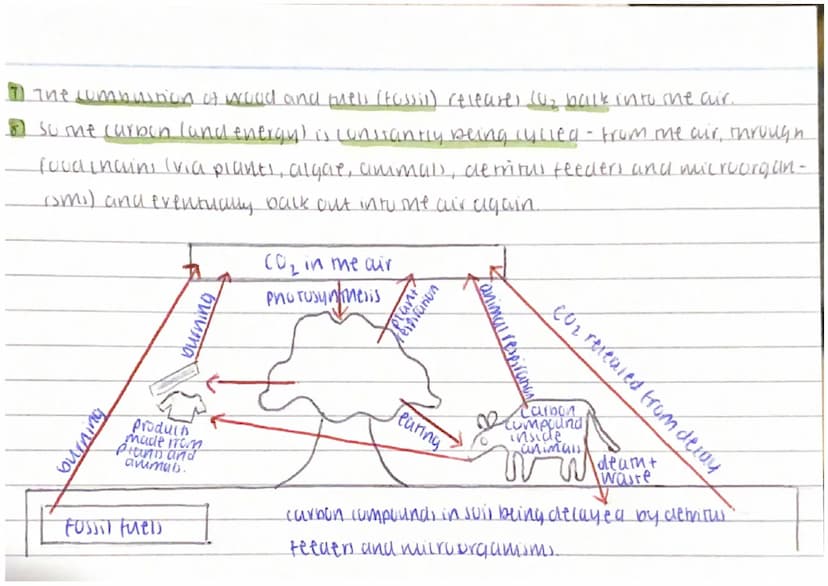 7) The combustion of wood and fuels (fossil) releases CO2 back into the air.
8) So the carbon (and energy) is constantly being cycled - from the air, through
food chains (via plants, algae, animals, detritus feeders and microorgan-
isms) and eventually back out into the air again.
CO2 in the air
photosynthesis
plant respiration
burning
animal respiration
CO2 released from decay
burning
products
made from
plants and
animals.
eating
carbon
compound
inside
animals
death +
waste
fossil fuels
carbon compounds in soil being decayed by detritus
feeders and microorganisms.